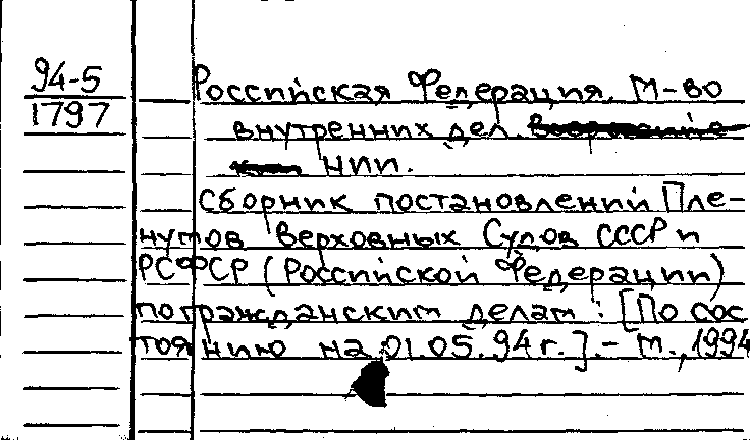 94-5
1797
Российская Федерация. М-во
внутренних дел.
НИИ.
Сборник постановлений Пле-
нумов Верховных Судов СССР и
РСФСР (Российской Федерации)
по гражданским делам : [По сос
тоянию на 01.05.94 г.]. - М., 1994